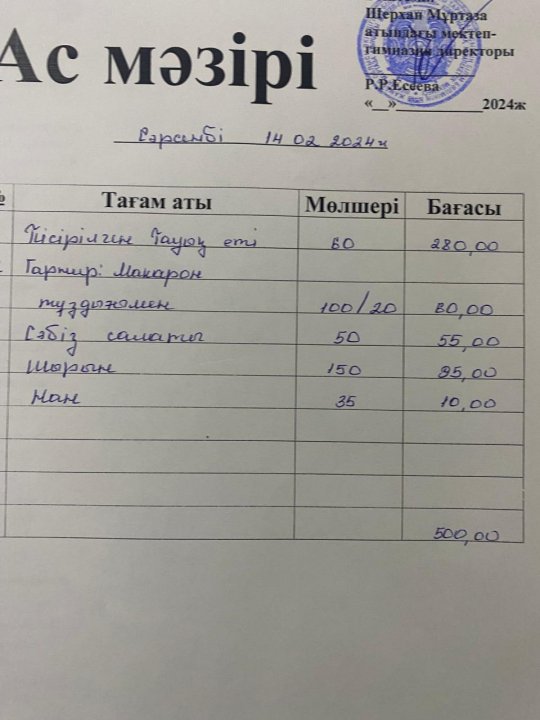 Шерхан Мұртаза
атындағы мектеп-
гимназия директоры
Р.Р.Есеева
«__»____________2024ж
Ас мәзірі
Сәрсенбі 14 02 2024ж
№ Тағам аты Мөлшері Бағасы
Пісірілген тауық еті 60 280,00
Гарнир: Макарон
тұздықпен 100/20 60,00
Сәбіз салаты 50 55,00
Шырын 150 95,00
Нан 35 10,00
500,00